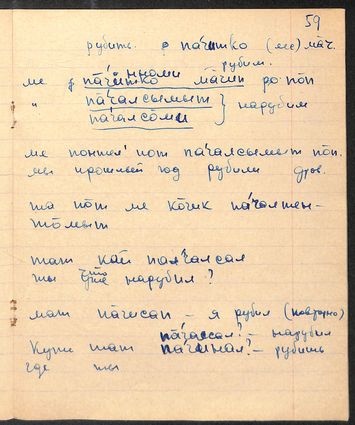 59
рубить. пачитко (ме) мач.
рубим.
ме пачиннами мачип ро поп
" пачалсымыт } нарубим
пачалсоми
ме пачалсымыт поп.
мы прошлый год рубили дров.
та пот ме кочик пачалтен-
томыт
тат кай пачалсал
ты что нарубил?
мат пачисап - я рубил (повторно)
пачассал? - нарубил
Кун тат пачинал? - рубишь
где ты